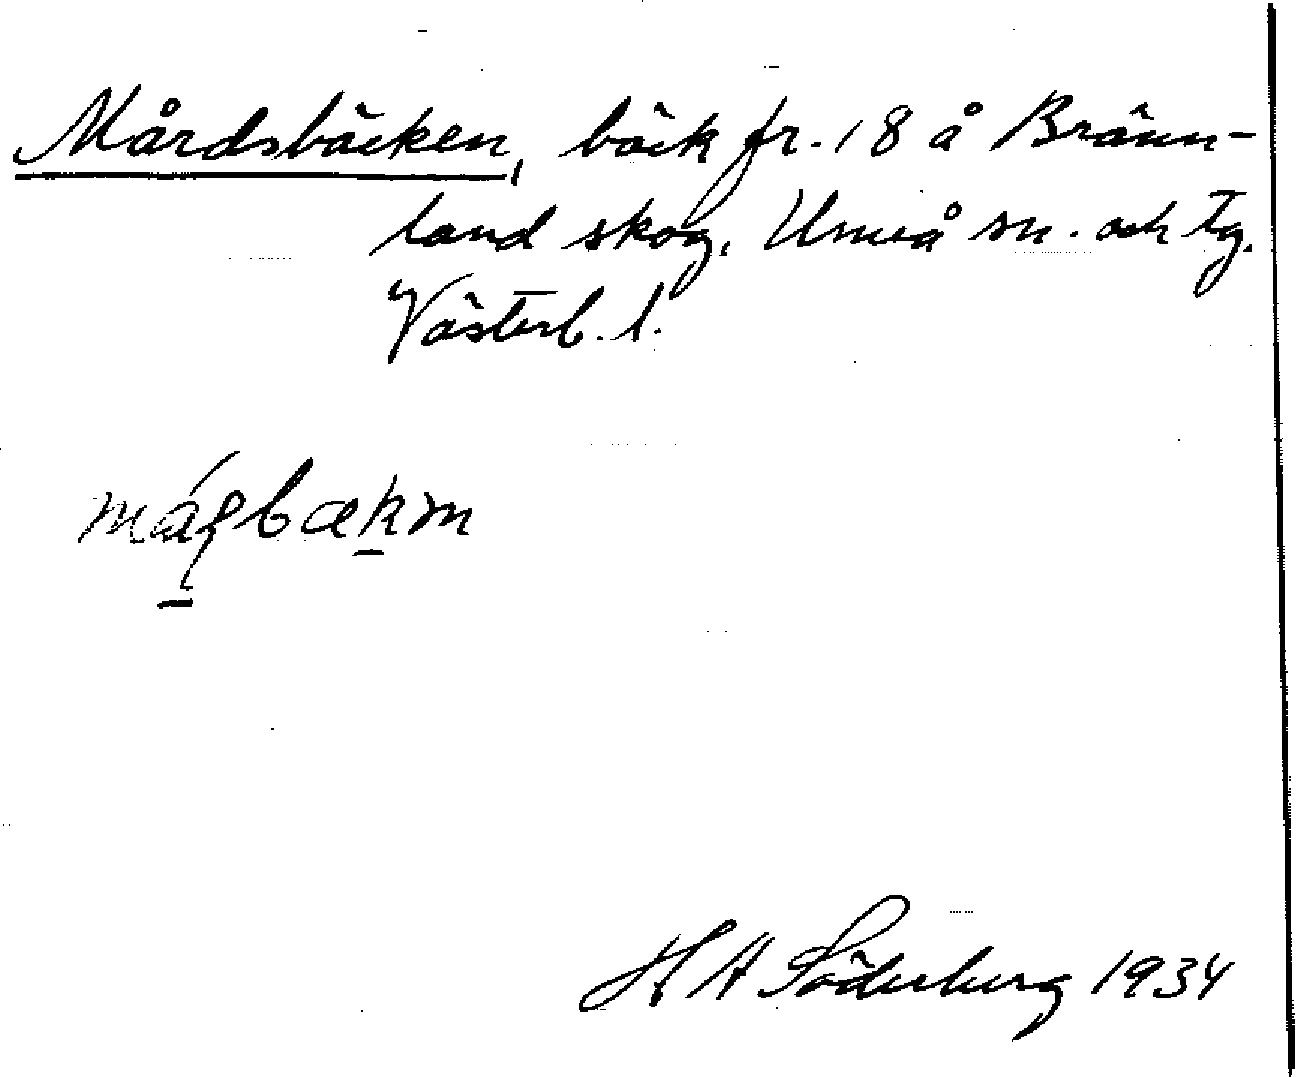 Mårdsbäcken, bäck fr. 18 å Bränn-
land skog, Umeå sn. och tg.
Västerb. l.
H A Söderberg 1934